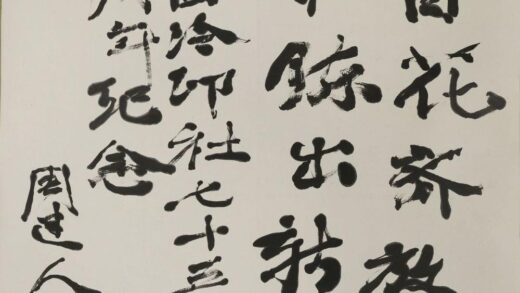 百花齐放
陈出新
西泠印社七十五
周年纪念
周建人